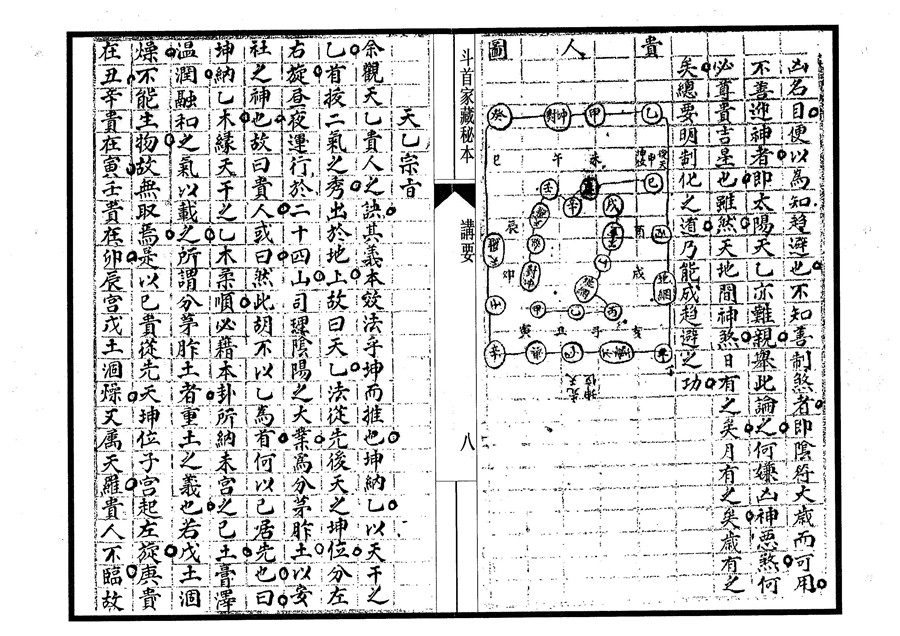 凶名目便以為知趨避也不知善制煞者即陰符大歲而可用
不善迎神者即太陽天乙亦難親舉此論之何嫌凶神惡煞何
必尊貴吉星也雖然天地間神煞日有之矣月有之矣歲有之
矣總要明制化之道乃能成趨避之功
貴人圖
乙
甲
對冲
癸
巳
午
未
申
酉
戌
亥
子
丑
寅
卯
辰
坤先天位
斗首家藏秘本
講要
八
天乙宗旨
余觀天乙貴人之訣其義本效法乎坤而推也坤納乙以天干之
乙首按二氣之秀出於地上故曰天乙法從先後天之坤位分左
右旋晝夜運行於二十四山司理陰陽之大業焉分茅胙土以安
社之神也故曰貴人或曰然此胡不以乙為首何以己居先也曰
坤納乙木緣天干之乙木柔順必藉本卦所納未宮之己土膏澤
温潤融和之氣以載之所謂分茅胙土者重土之義也若戊土涸
燥不能生物故無取焉是以己貴從先天坤位子宮起左旋庚貴
在丑辛貴在寅壬貴在卯辰宮戊土涸燥又属天羅貴人不臨故